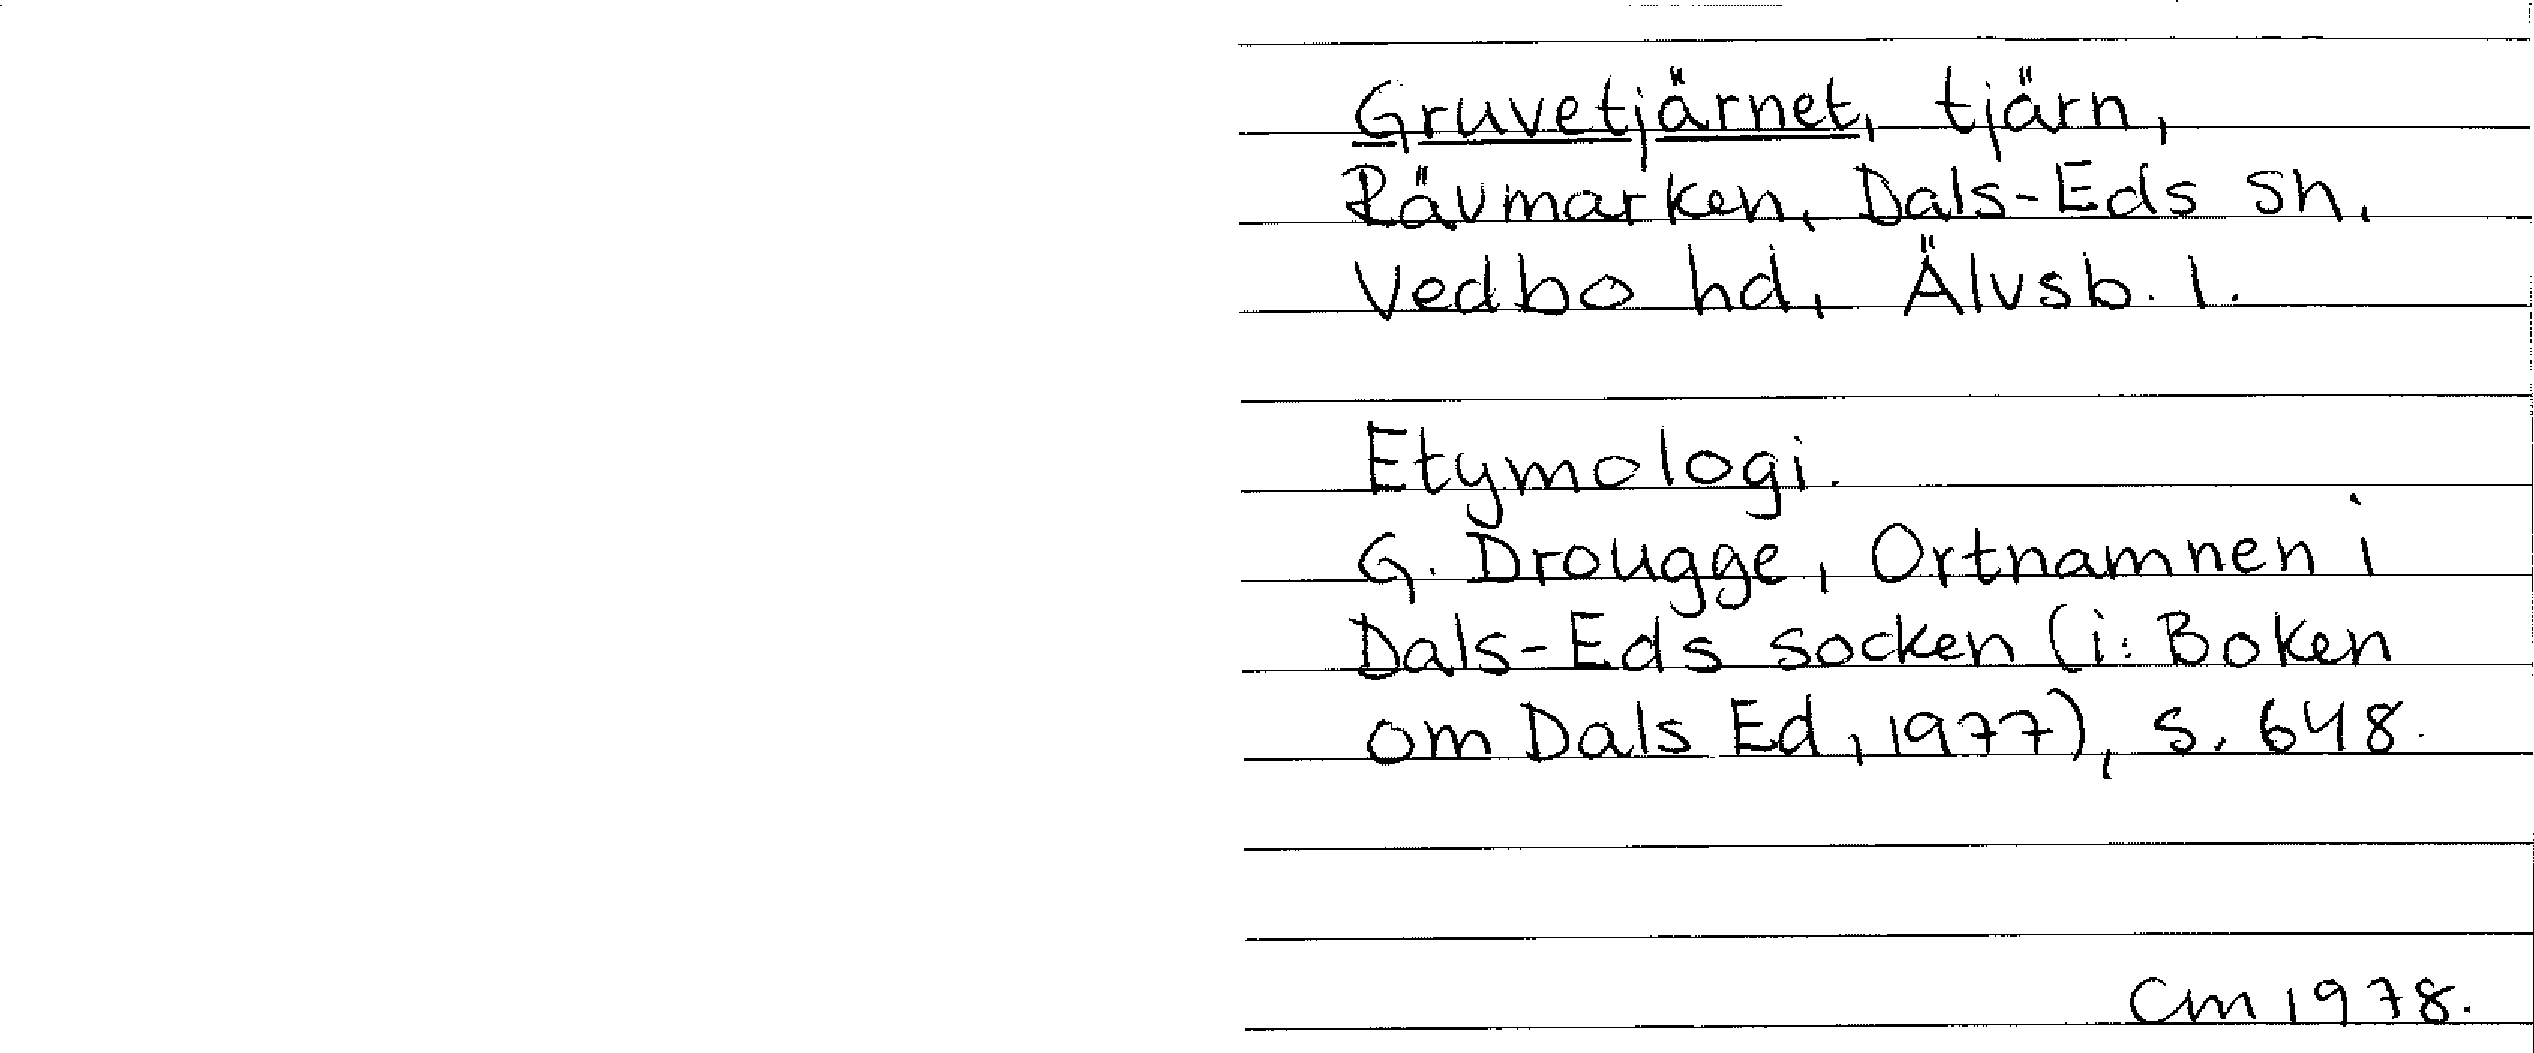 Gruvetjärnet, tjärn,
Rävmarken, Dals-Eds sn,
Vedbo hd, Älvsb. l.
Etymologi.
G. Drougge, Ortnamnen i
Dals-Eds socken (i: Boken
om Dals Ed, 1977), s. 648.
CM 1978.